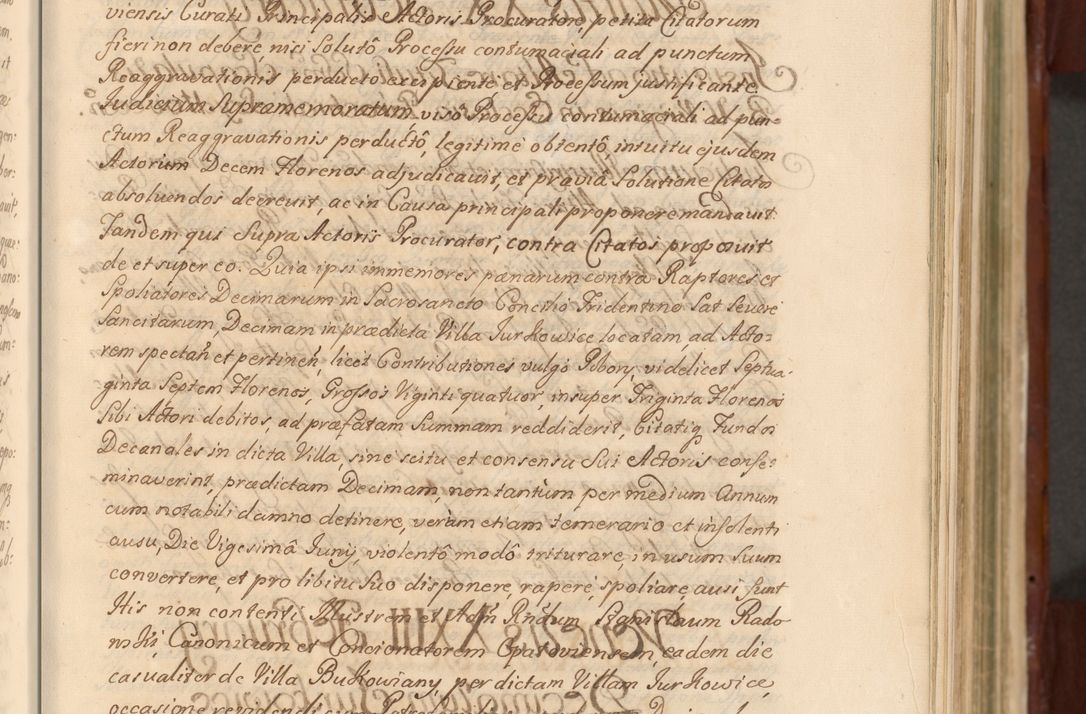 viensis Curati Principalis Actoris Procuratore, petita Citatorum
fieri non debere nici Solutô Processu contumaciali ad punctum
Reaggravationis perducto excipiente et Processum justificante
Judicium Supramemoratum, visô Processu contumaciali ad pun-
ctum Reaggravationis perductô, legitimè obtentô, intuitu ejusdem
Actorium Decem Florenos adjudicavit, et praviâ Solutione Citatos
absolvendos decrevit, ac in Causa principali proponere mandavit.
Tandem qui Supra Actoris Procurator, contra Citatos proposuit
de et super eo. Quia ipsi immemores pænarum contra Raptores et
Spoliatores Decimarum in Sacrosancto Concilio Tridentino Sat Severè
Sancitarum, Decimam in prædicta Villa Jurkowice locatam ad Acto-
rem spectañ et pertineñ, licet Contributiones vulgò Pobory, videlicet Septua-
ginta Septem Florenos, Grossos Viginti quatuor, insuper Triginta Florenos
Sibi Actori debitos, ad præfatam Summam reddiderit, Citatiq Fundos
Decanales in dicta Villa, sine scitu et consensu Sui Actoris conse-
minaverint, prædictam Decimam, non tantùm per medium Annum
cum notabili damno detinere, verùm etiam temerario et insolenti
ausu, Die Vigesimâ Junij, violentô modô triturare, in usum Suum
convertere, et pro libitu Suo disponere, rapere spoliare, ausi sunt
His non contenti Illustrem et Adm Rndum Stanislaum Rado-
mski, Canonicum et Concionatorem Opatoviensem, eadem die
casualiter de Villa Bukowiany, per dictam Villam Jurkowice,
occasione